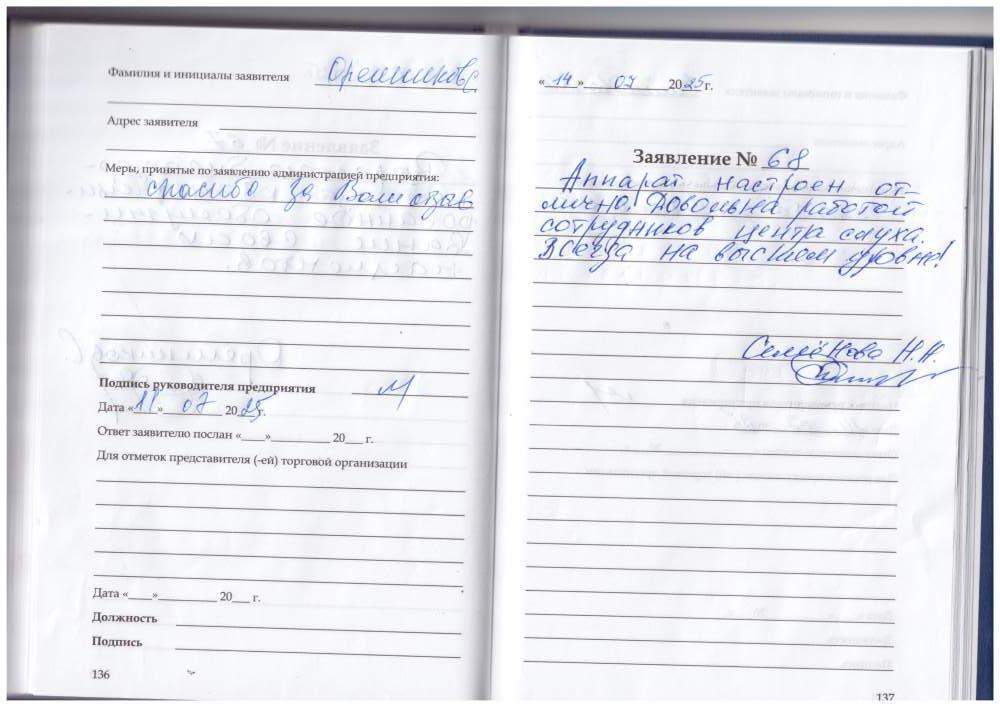 Фамилия и инициалы заявителя Орешников С
Адрес заявителя
Меры, принятые по заявлению администрацией предприятия:
спасибо за Ваш отзыв
Подпись руководителя предприятия
Дата «11» 07 2025г.
Ответ заявителю послан «___»_________ 20___ г.
Для отметок представителя (-ей) торговой организации
Дата «___»_________ 20___ г.
Должность
Подпись
136
«14» 07 2025г.
Заявление № 68
Аппарат настроен от-
лично. Довольна работой
сотрудников центра слуха.
Всегда на высшем уровне!
Семёнова Н.Н.
137